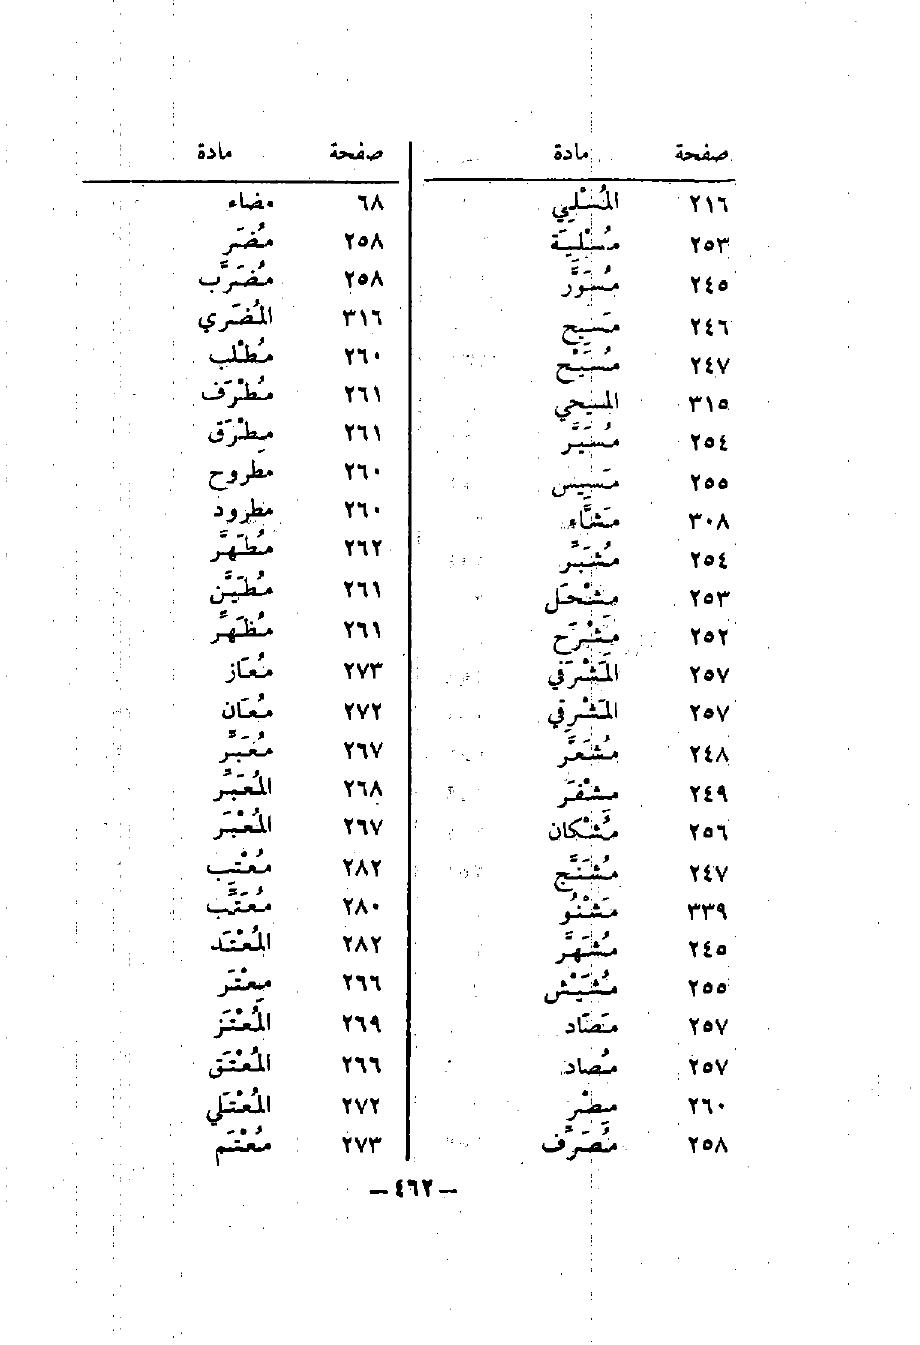 صفحة مادة
٢١٦ المُسْلِي
٢٥٣ مُسْلِيَة
٢٤٥ مُسَوَّر
٢٤٦ مَسِيح
٢٤٧ مُسَيْح
٣١٥ المسيحي
٢٥٤ مُسَيَّر
٢٥٥ مَسِيس
٣٠٨ مَشَّاء
٢٥٤ مُشَبَّر
٢٥٣ مِشْحَل
٢٥٢ مِشْرَح
٢٥٧ المَشْرَفي
٢٥٧ المَشْرِقي
٢٤٨ مُشَعَّر
٢٤٩ مشْفَر
٢٥٦ مُشْكان
٢٤٧ مُشَنَّج
٣٣٩ مَشْنُو
٢٤٥ مُشَهَّر
٢٥٥ مُشَيْش
٢٥٧ مَصَاد
٢٥٧ مُصاد
٢٦٠ مِصْر
٢٥٨ مُصَرَّف
صفحة مادة
٦٨ مضاء
٢٥٨ مُضَر
٢٥٨ مُضَرَّب
٣١٦ المُضَري
٢٦٠ مُطْلب
٢٦١ مُطْرَف
٢٦١ مِطْرَق
٢٦٠ مطروح
٢٦٠ مطرود
٢٦٢ مُطَهَّر
٢٦١ مُطَيَّن
٢٦١ مُظَهَّر
٢٧٣ مُعَاز
٢٧٢ مُعَان
٢٦٧ مُعَبَّر
٢٦٨ المُعَبَّر
٢٦٧ المُعْبَر
٢٨٢ مُعْتب
٢٨٠ مُعَتَّب
٢٨٢ المُعْتَد
٢٦٦ مِعْتَر
٢٦٩ المُعْتَز
٢٦٦ المُعْتَق
٢٧٢ المُعْتَلي
٢٧٣ مُعْتَم
– ٤٦٢ –